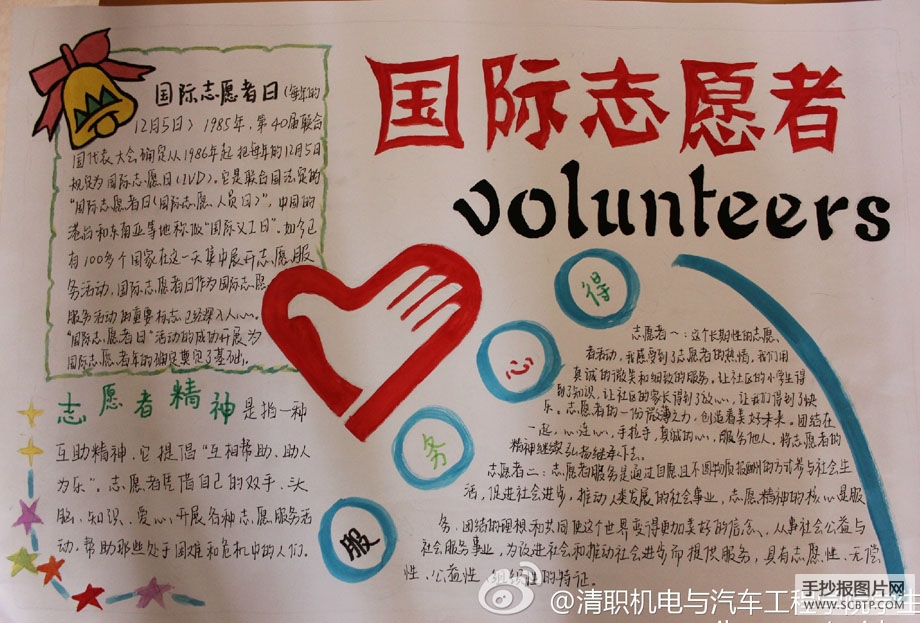 国际志愿者
volunteers
国际志愿者日(每年的
12月5日)1985年,第40届联合
国代表大会确定从1986年起把每年的12月5日
规定为国际志愿日(IVD)。它是联合国法定的
“国际志愿者日(国际志愿人员日)”,中国的
港台和东南亚等地称做“国际义工日”。如今已
有100多个国家在这一天集中展开志愿服
务活动,国际志愿者日作为国际志愿
服务活动的重要标志已经深入人心。
“国际志愿者日”活动的成功开展为
国际志愿者年的确定奠定了基础。
志愿者精神是指一种
互助精神,它提倡“互相帮助、助人
为乐”。志愿者凭借自己的双手、头
脑、知识、爱心开展各种志愿服务活
动,帮助那些处于困难和危机中的人们。
服
务
心
得
志愿者一:这个长期性的志愿
者活动,我感受到了志愿者的热情,我们用
真诚的微笑和细致的服务,让社区的小学生得
到了知识,让社区的家长得到了放心,让我们得到了快
乐。志愿者的一份微薄之力,创造着美好未来。团结在
一起,心连心,手拉手,真诚的心,服务他人,将志愿者的
精神继续弘扬继承下去。
志愿者二:志愿者服务是通过自愿且不图物质报酬的方式参与社会生
活,促进社会进步,推动人类发展的社会事业,志愿精神的核心是服
务、团结的理想和共同使这个世界变得更加美好的信念、从事社会公益与
社会服务事业,为改进社会和推动社会进步而提供服务,具有志愿性、无偿
性、公益性、组织性的特征。
@清职机电与汽车工程
手抄报图片网
WWW.SCBTP.COM